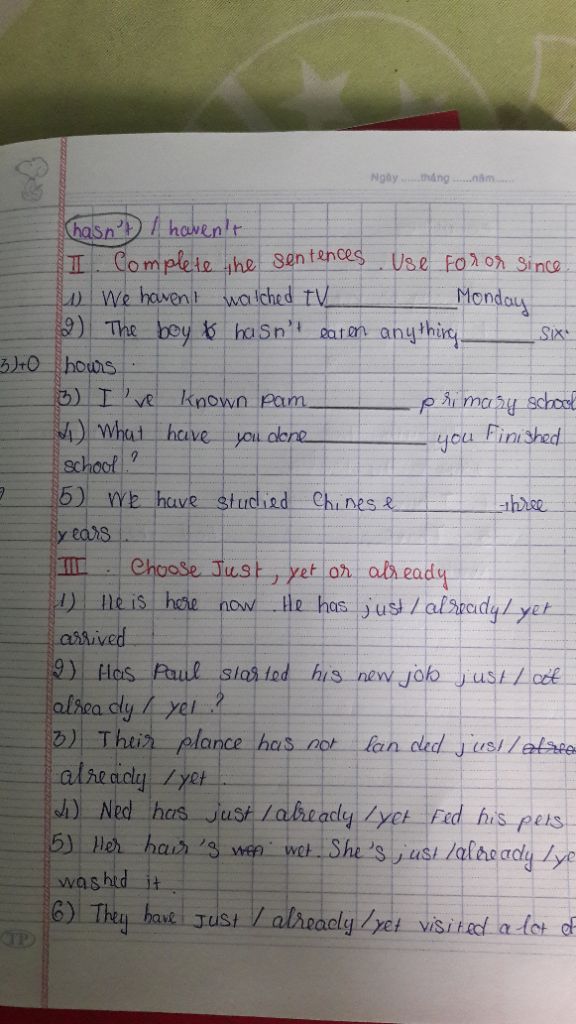 Ngày ......tháng ......năm ......
hasn't / haven't
II. Complete the sentences. Use For or since.
1) We haven't watched TV__________ Monday
2) The boy hasn't eaten anything______ six
3)+0 hours.
3) I've known Pam________ primary school
4) What have you done_________ you Finished
school?
5) We have studied Chinese________ three
years.
III. Choose Just, yet or already
1) He is here now. He has just / already / yet
arrived
2) Has Paul started his new job just /
already / yet?
3) Their plance has not landed just /
already / yet.
4) Ned has just / already / yet Fed his pets
5) Her hair's wet. She's just / already / ye
washed it.
6) They have Just / already / yet visited a lot of